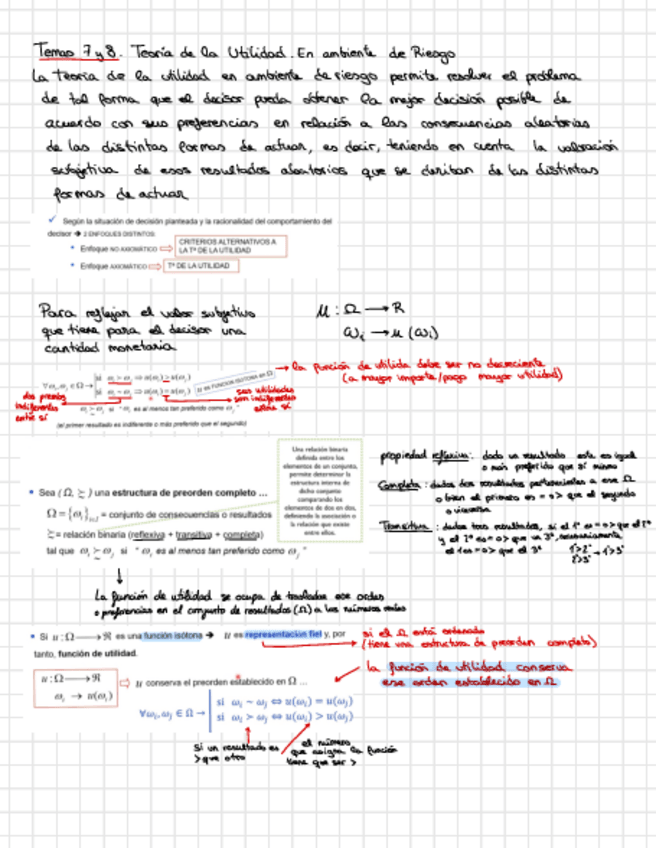 Temas 7 y 8. Teoría de la Utilidad. En ambiente de Riesgo
La teoría de la utilidad en ambiente de riesgo permite resolver el problema
de tal forma que el decisor pueda obtener la mejor decisión posible de
acuerdo con sus preferencias en relación a las consecuencias aleatorias
de las distintas formas de actuar, es decir, teniendo en cuenta la valoración
subjetiva de esos resultados aleatorios que se derivan de las distintas
formas de actuar
✓ Según la situación de decisión planteada y la racionalidad del comportamiento del
decisor → 2 ENFOQUES DISTINTOS:
• Enfoque NO AXIOMÁTICO ⇨ CRITERIOS ALTERNATIVOS A
LA Tª DE LA UTILIDAD
• Enfoque AXIOMÁTICO ⇨ Tª DE LA UTILIDAD
Para reflejar el valor subjetivo
que tiene para el decisor una
cantidad monetaria
u : Ω → R
ωi → u (ωi)
→ la función de utilida debe ser no decreciente
(a mayor importe/pago mayor utilidad)
dos premios
indiferentes
entre sí
sus utilidades
son indiferentes
entre sí
ωi ≿ ωj si " ωi es al menos tan preferido como ωj "
(el primer resultado es indiferente o más preferido que el segundo)
Una relación binaria
definida entre los
elementos de un conjunto,
permite determinar la
estructura interna de
dicho conjunto
comparando los
elementos de dos en dos,
definiendo la asociación o
la relación que existe
entre ellos.
• Sea (Ω, ≿) una estructura de preorden completo ...
Ω = {ωi}i∈I = conjunto de consecuencias o resultados
≿ = relación binaria (reflexiva + transitiva + completa)
tal que ωi ≿ ωj si " ωi es al menos tan preferido como ωj "
propiedad reflexiva: dado un resultado este es igual
o más preferido que sí mismo
Completa: dados dos resultados pertenecientes a ese Ω
o bien el primero es = o > que el segundo
o viceversa
Transitiva: dados tres resultados, si el 1º es = o > que el 2º
y el 2º es = o > que un 3º, necesariamente
el 1 es = o > que el 3º
1º>2º
2º>3º → 1>3º
La función de utilidad se ocupa de trasladar ese orden
o preferencias en el conjunto de resultados (Ω) a los números reales
• Si u : Ω → ℜ es una función isótona → u es representación fiel y, por
tanto, función de utilidad.
si el Ω está ordenado
(tiene una estructura de preorden completo)
u : Ω → ℜ
ωi → u(ωi)
⇨ u conserva el preorden establecido en Ω ...
la función de utilidad conserva
ese orden establecido en Ω
∀ωi, ωj ∈ Ω → si ωi ~ ωj ⇔ u(ωi) = u(ωj)
si ωi ≻ ωj ⇔ u(ωi) > u(ωj)
Si un resultado es
> que otro
el número
que asigna la función
tiene que ser >